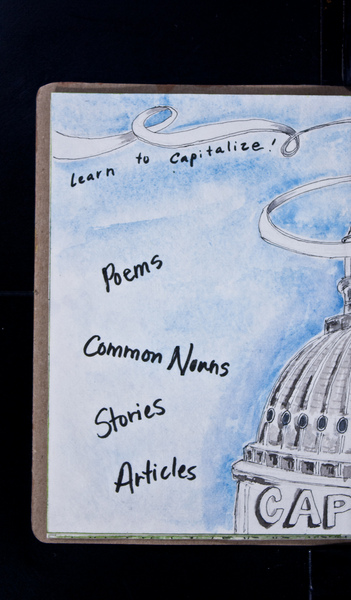 Learn to Capitalize!
Poems
Common Nouns
Stories
Articles
CAP